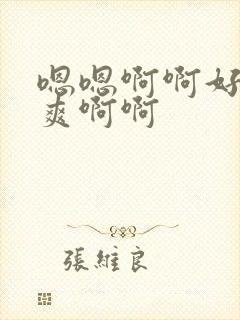 嗯嗯啊啊好
爽啊啊
張維良